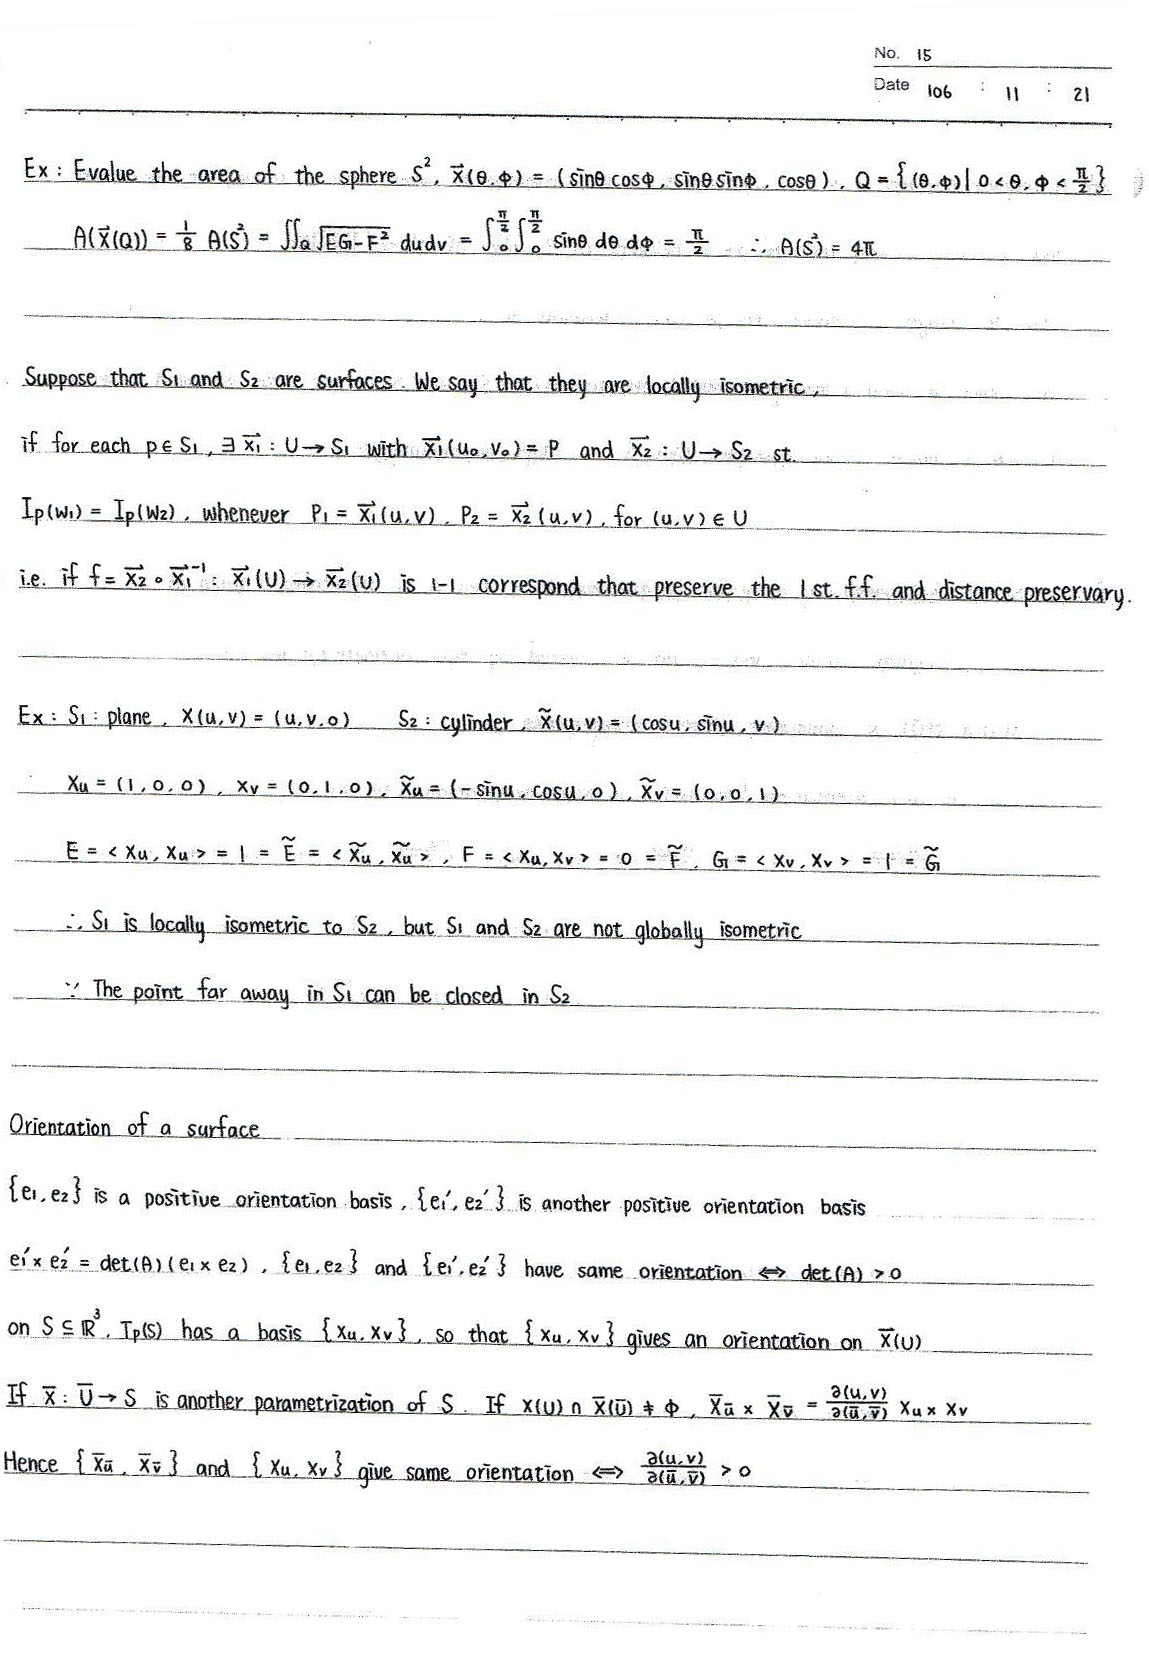 No. 15
Date 106 : 11 : 21
Ex : Evalue the area of the sphere S², x⃗(θ,φ) = (sinθ cosφ, sinθ sinφ, cosθ), Q = {(θ,φ) | 0<θ,φ<π/2}
A(x⃗(Q)) = 1/8 A(S²) = ∬_Q √(EG-F²) dudv = ∫₀^{π/2} ∫₀^{π/2} sinθ dθ dφ = π/2 ∴ A(S²) = 4π
Suppose that S₁ and S₂ are surfaces. We say that they are locally isometric,
if for each p∈S₁, ∃ x⃗₁ : U→S₁ with x⃗₁(u₀,v₀) = P and x⃗₂ : U→S₂ st.
Ip(w₁) = Ip(w₂), whenever P₁ = x⃗₁(u,v), P₂ = x⃗₂(u,v), for (u,v)∈U
i.e. if f = x⃗₂∘x⃗₁⁻¹ : x⃗₁(U)→x⃗₂(U) is 1-1 correspond that preserve the 1st. f.f. and distance preservary.
Ex : S₁ : plane, X(u,v) = (u,v,0) S₂ : cylinder, x̃(u,v) = (cosu, sinu, v)
Xu = (1,0,0), Xv = (0,1,0), x̃u = (-sinu, cosu, 0), x̃v = (0,0,1)
E = <Xu, Xu> = 1 = Ẽ = <x̃u, x̃u>, F = <Xu, Xv> = 0 = F̃, G = <Xv, Xv> = 1 = G̃
∴ S₁ is locally isometric to S₂, but S₁ and S₂ are not globally isometric
∵ The point far away in S₁ can be closed in S₂
Orientation of a surface
{e₁,e₂} is a positive orientation basis, {e₁′,e₂′} is another positive orientation basis
e₁′×e₂′ = det(A)(e₁×e₂), {e₁,e₂} and {e₁′,e₂′} have same orientation ⇔ det(A) > 0
on S⊆ℝ³, Tp(S) has a basis {Xu,Xv}, so that {Xu,Xv} gives an orientation on x⃗(U)
If x̄ : Ū→S is another parametrization of S. If X(U)∩x̄(ū) ≠ φ, x̄ū × x̄v̄ = ∂(u,v)/∂(ū,v̄) Xu × Xv
Hence {x̄ū, x̄v̄} and {Xu,Xv} give same orientation ⇔ ∂(u,v)/∂(ū,v̄) > 0